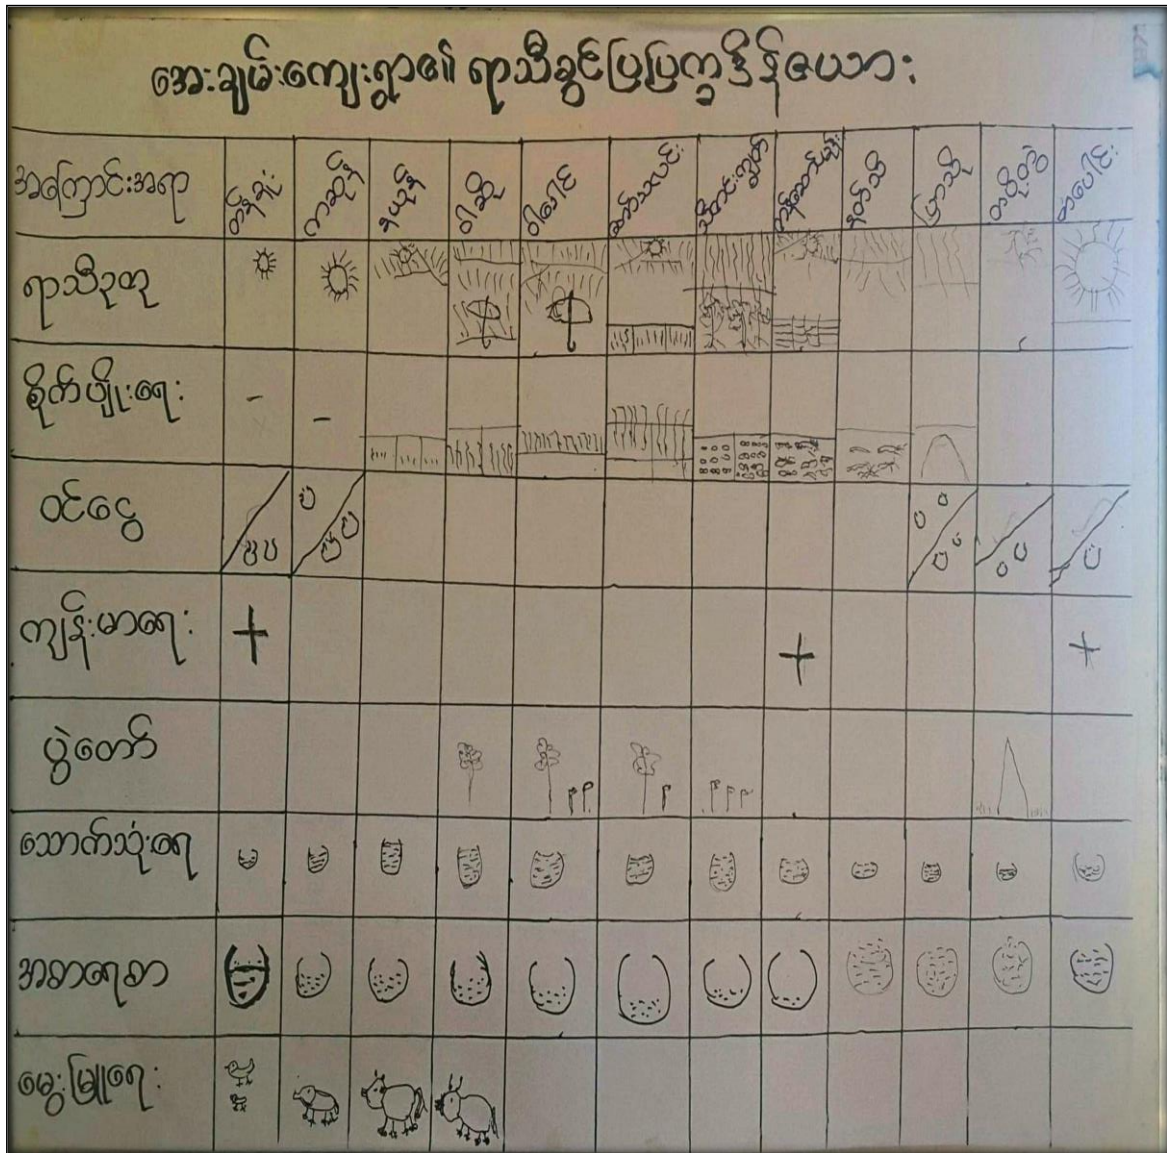 အေးချမ်းကျေးရွာ၏ ရာသီခွင်ပြပြက္ခဒိန်ဇယား
အကြောင်းအရာ တန်ခူး ကဆုန် နယုန် ဝါဆို ဝါခေါင် တော်သလင်း သီတင်းကျွတ် တန်ဆောင်မုန်း နတ်တော် ပြာသို တပို့တွဲ တပေါင်း
ရာသီဥတု
စိုက်ပျိုးရေး
ဝင်ငွေ
ကျန်းမာရေး
ပွဲတော်
သောက်သုံးရေ
အစာရေစာ
မွေးမြူရေး